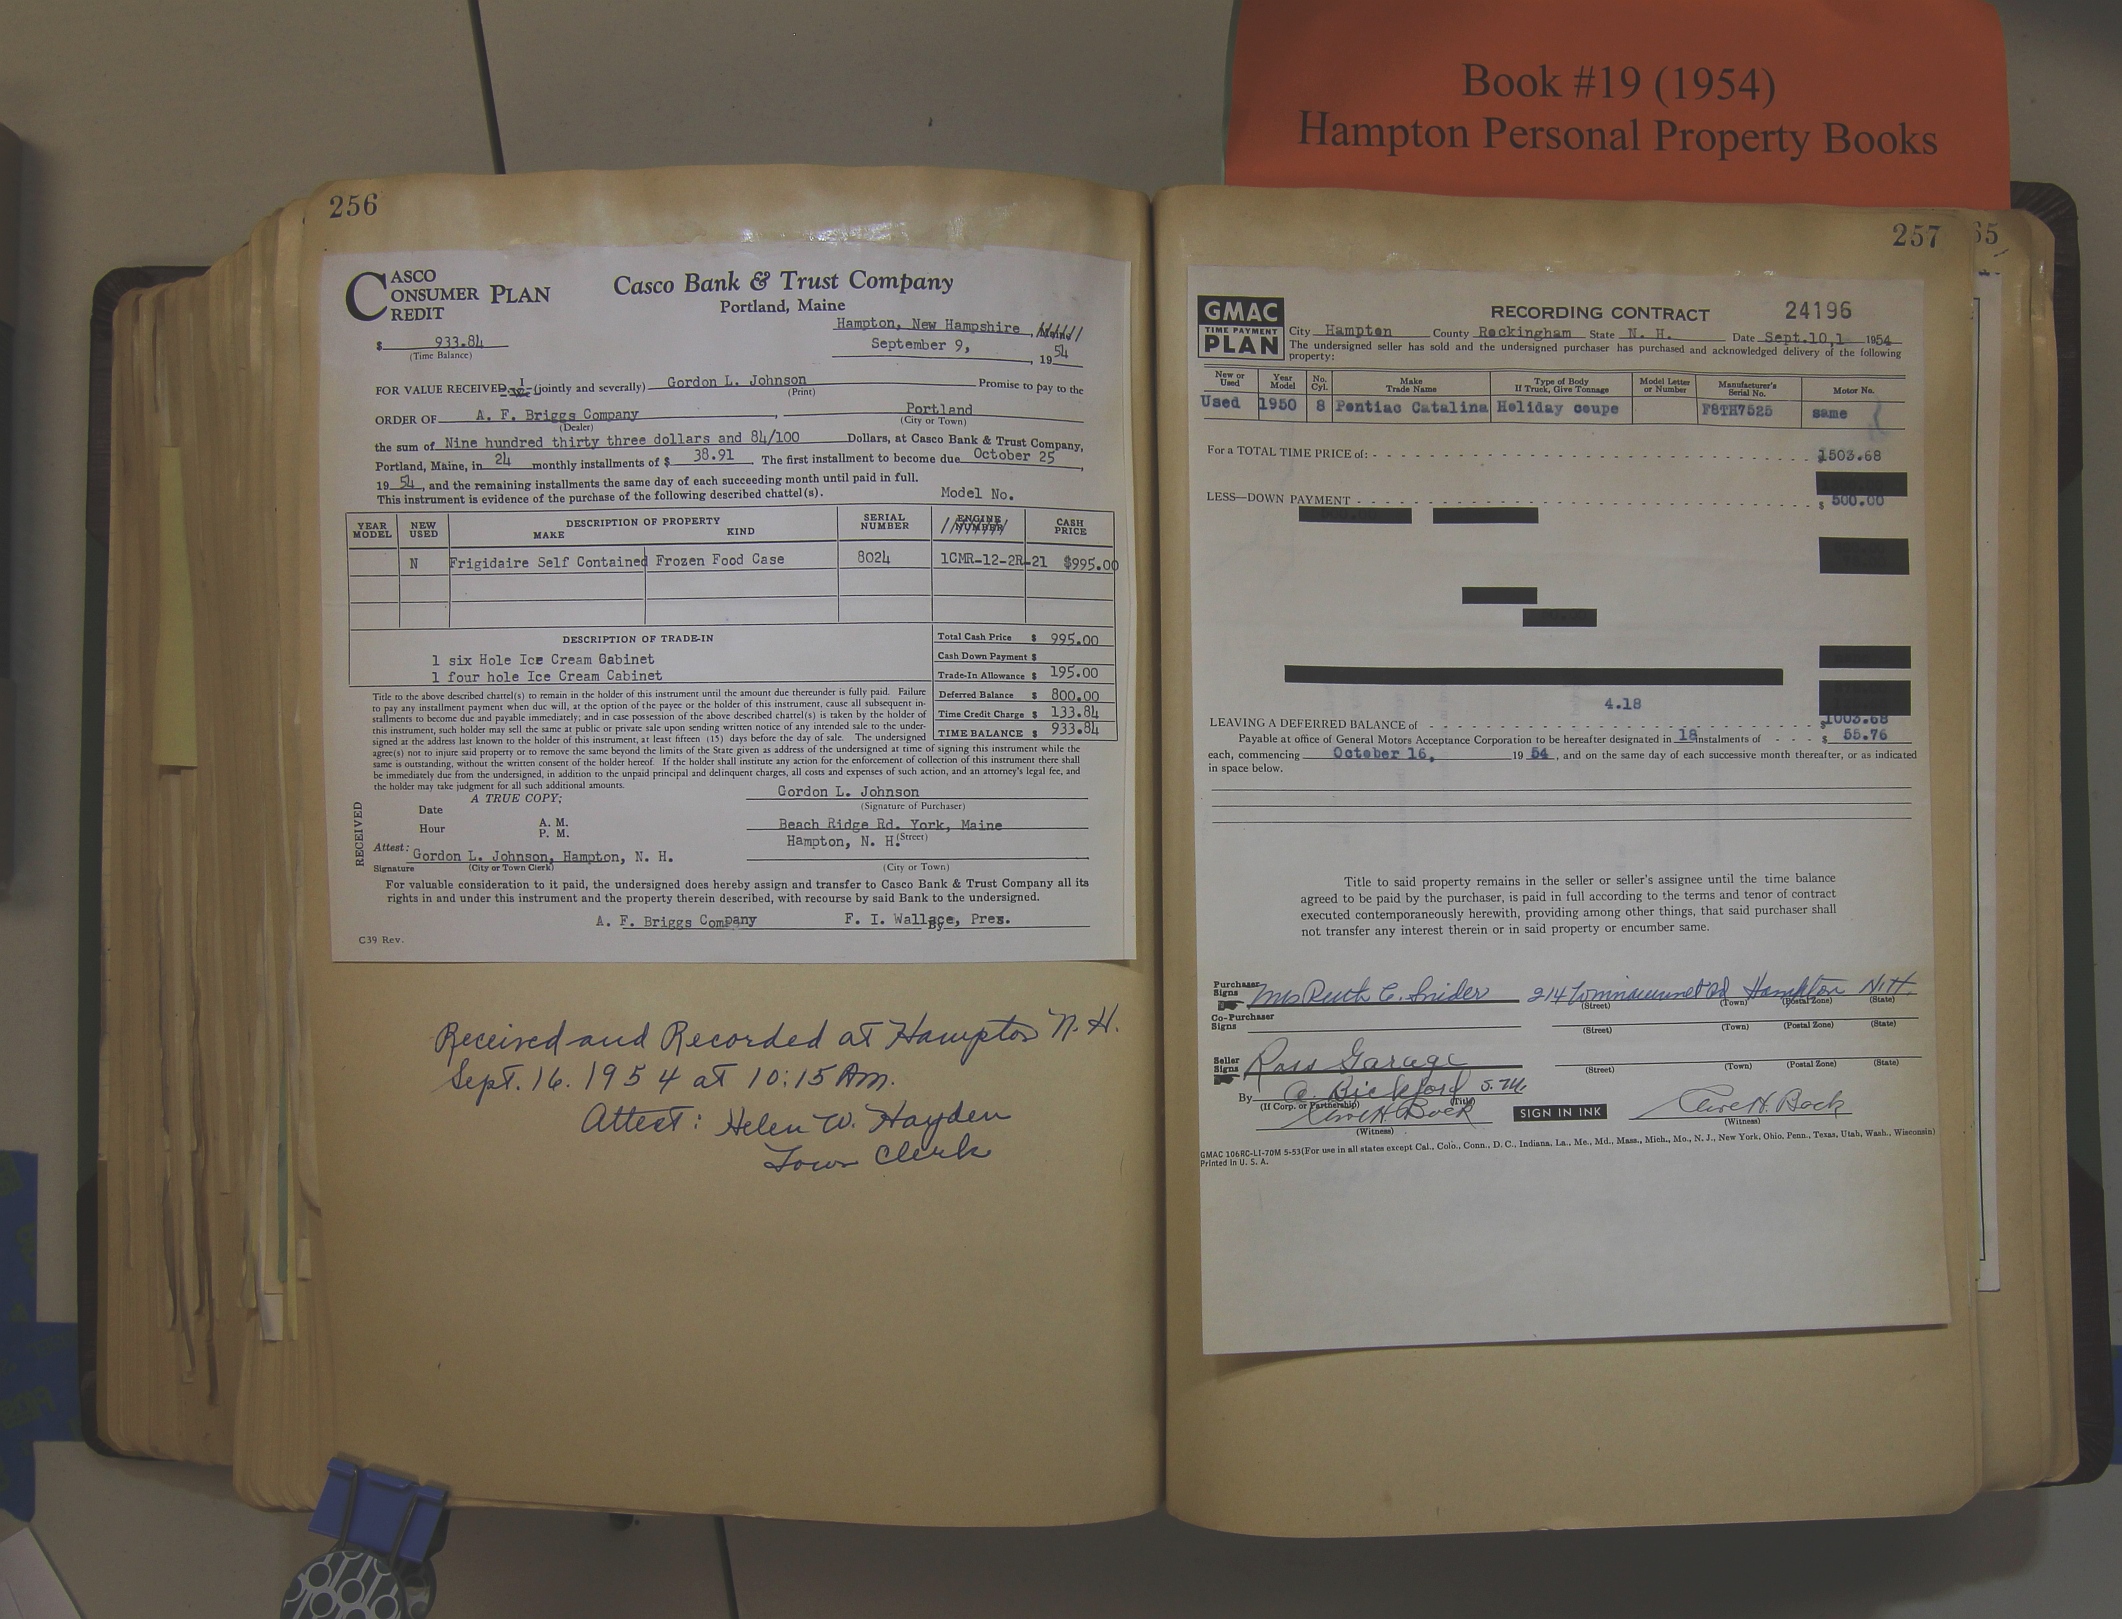 Book #19 (1954)
Hampton Personal Property Books
256
CASCO
CONSUMER PLAN
CREDIT
Casco Bank & Trust Company
Portland, Maine
Hampton, New Hampshire
$ 933.84
(Time Balance)
September 9, 1954
FOR VALUE RECEIVED I (jointly and severally) Gordon L. Johnson Promise to pay to the
(Print)
ORDER OF A. F. Briggs Company, Portland
(Dealer) (City or Town)
the sum of Nine hundred thirty three dollars and 84/100 Dollars, at Casco Bank & Trust Company,
Portland, Maine, in 24 monthly installments of $ 38.91 The first installment to become due October 25,
19 54, and the remaining installments the same day of each succeeding month until paid in full.
This instrument is evidence of the purchase of the following described chattel(s). Model No.
YEAR MODEL NEW USED DESCRIPTION OF PROPERTY MAKE KIND SERIAL NUMBER ENGINE NUMBER CASH PRICE
N Frigidaire Self Contained Frozen Food Case 8024 1CMR-12-2R-21 $995.00
DESCRIPTION OF TRADE-IN
1 six Hole Ice Cream Cabinet
1 four hole Ice Cream Cabinet
Total Cash Price $ 995.00
Cash Down Payment $
Trade-In Allowance $ 195.00
Deferred Balance $ 800.00
Time Credit Charge $ 133.84
TIME BALANCE $ 933.84
Title to the above described chattel(s) to remain in the holder of this instrument until the amount due thereunder is fully paid. Failure
to pay any installment payment when due will, at the option of the payee or the holder of this instrument, cause all subsequent in-
stallments to become due and payable immediately; and in case possession of the above described chattel(s) is taken by the holder of
this instrument, such holder may sell the same at public or private sale upon sending written notice of any intended sale to the under-
signed at the address last known to the holder of this instrument, at least fifteen (15) days before the day of sale. The undersigned
agree(s) not to injure said property or to remove the same beyond the limits of the State given as address of the undersigned at time of signing this instrument while the
same is outstanding, without the written consent of the holder hereof. If the holder shall institute any action for the enforcement of collection of this instrument there shall
be immediately due from the undersigned, in addition to the unpaid principal and delinquent charges, all costs and expenses of such action, and an attorney's legal fee, and
the holder may take judgment for all such additional amounts.
RECEIVED
A TRUE COPY;
Date
Hour A. M.
P. M.
Attest: Gordon L. Johnson, Hampton, N. H.
Signature (City or Town Clerk)
Gordon L. Johnson
(Signature of Purchaser)
Beach Ridge Rd. York, Maine
Hampton, N. H. (Street)
(City or Town)
For valuable consideration to it paid, the undersigned does hereby assign and transfer to Casco Bank & Trust Company all its
rights in and under this instrument and the property therein described, with recourse by said Bank to the undersigned.
A. F. Briggs Company F. I. Wallace, Pres.
By
C39 Rev.
Received and Recorded at Hampton N. H.
Sept. 16. 1954 at 10:15 Am.
Attest: Helen W. Hayden
Town Clerk
257
GMAC
TIME PAYMENT
PLAN
RECORDING CONTRACT 24196
City Hampton County Rockingham State N. H. Date Sept.10,1 1954
The undersigned seller has sold and the undersigned purchaser has purchased and acknowledged delivery of the following
property:
New or Used Year Model No. Cyl. Make Trade Name Type of Body If Truck, Give Tonnage Model Letter or Number Manufacturer's Serial No. Motor No.
Used 1950 8 Pontiac Catalina Holiday coupe F8TH7525 same
For a TOTAL TIME PRICE of: $1503.68
LESS—DOWN PAYMENT $ 500.00
4.18
LEAVING A DEFERRED BALANCE of $1003.68
Payable at office of General Motors Acceptance Corporation to be hereafter designated in 18 instalments of $ 55.76
each, commencing October 16, 19 54, and on the same day of each successive month thereafter, or as indicated
in space below.
Title to said property remains in the seller or seller's assignee until the time balance
agreed to be paid by the purchaser, is paid in full according to the terms and tenor of contract
executed contemporaneously herewith, providing among other things, that said purchaser shall
not transfer any interest therein or in said property or encumber same.
Purchaser Signs Mrs Ruth C. Snider 214 Winnacunnet Rd Hampton N.H.
(Street) (Town) (Postal Zone) (State)
Co-Purchaser Signs
(Street) (Town) (Postal Zone) (State)
Seller Signs Ross Garage
(Street) (Town) (Postal Zone) (State)
By Bickford S.M.
(If Corp. or Partnership) (Title)
SIGN IN INK
(Witness) (Witness)
GMAC 106RC-LI-70M 5-53 (For use in all states except Cal., Colo., Conn., D. C., Indiana, La., Me., Md., Mass., Mich., Mo., N. J., New York, Ohio, Penn., Texas, Utah, Wash., Wisconsin)
Printed in U. S. A.